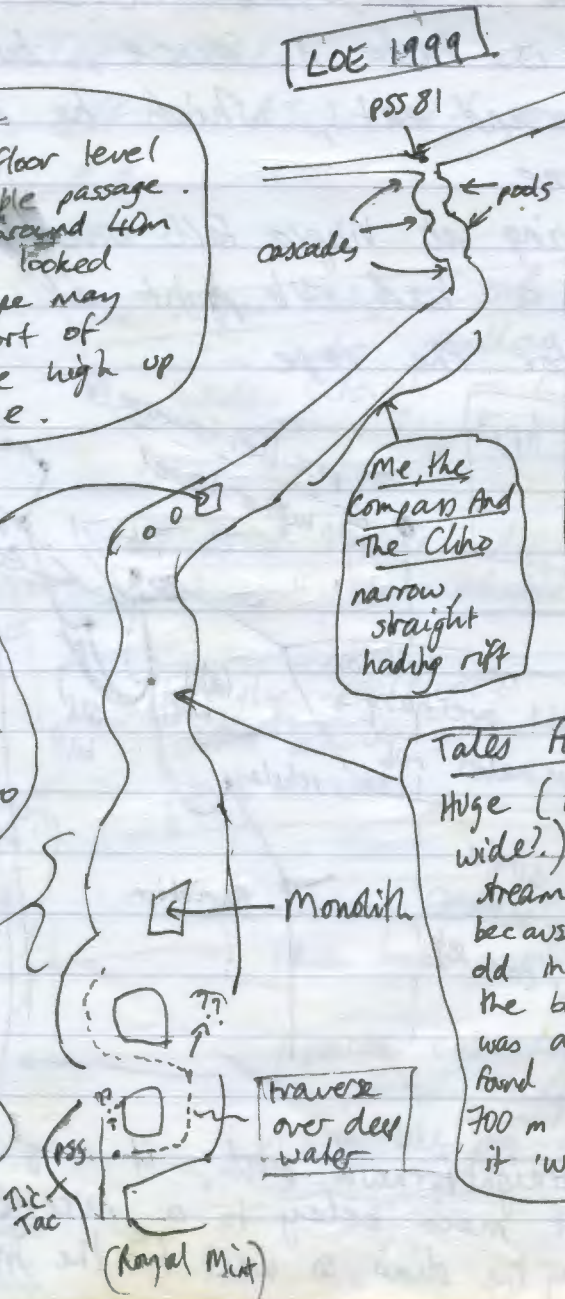 LOE 1999
pss 81
pods
cascades
floor level
ble passage.
around 40m
looked
pe may
rt of
e high up
e.
Me, the
Compass And
The Clino
narrow,
straight
hading rift
Tales
Huge (
wide?)
stream
because
old
the b
was a
found
700 m
it 'w
Monolith
??
??
traverse
over deep
water
pss
Tic
Tac
(Royal Mint)